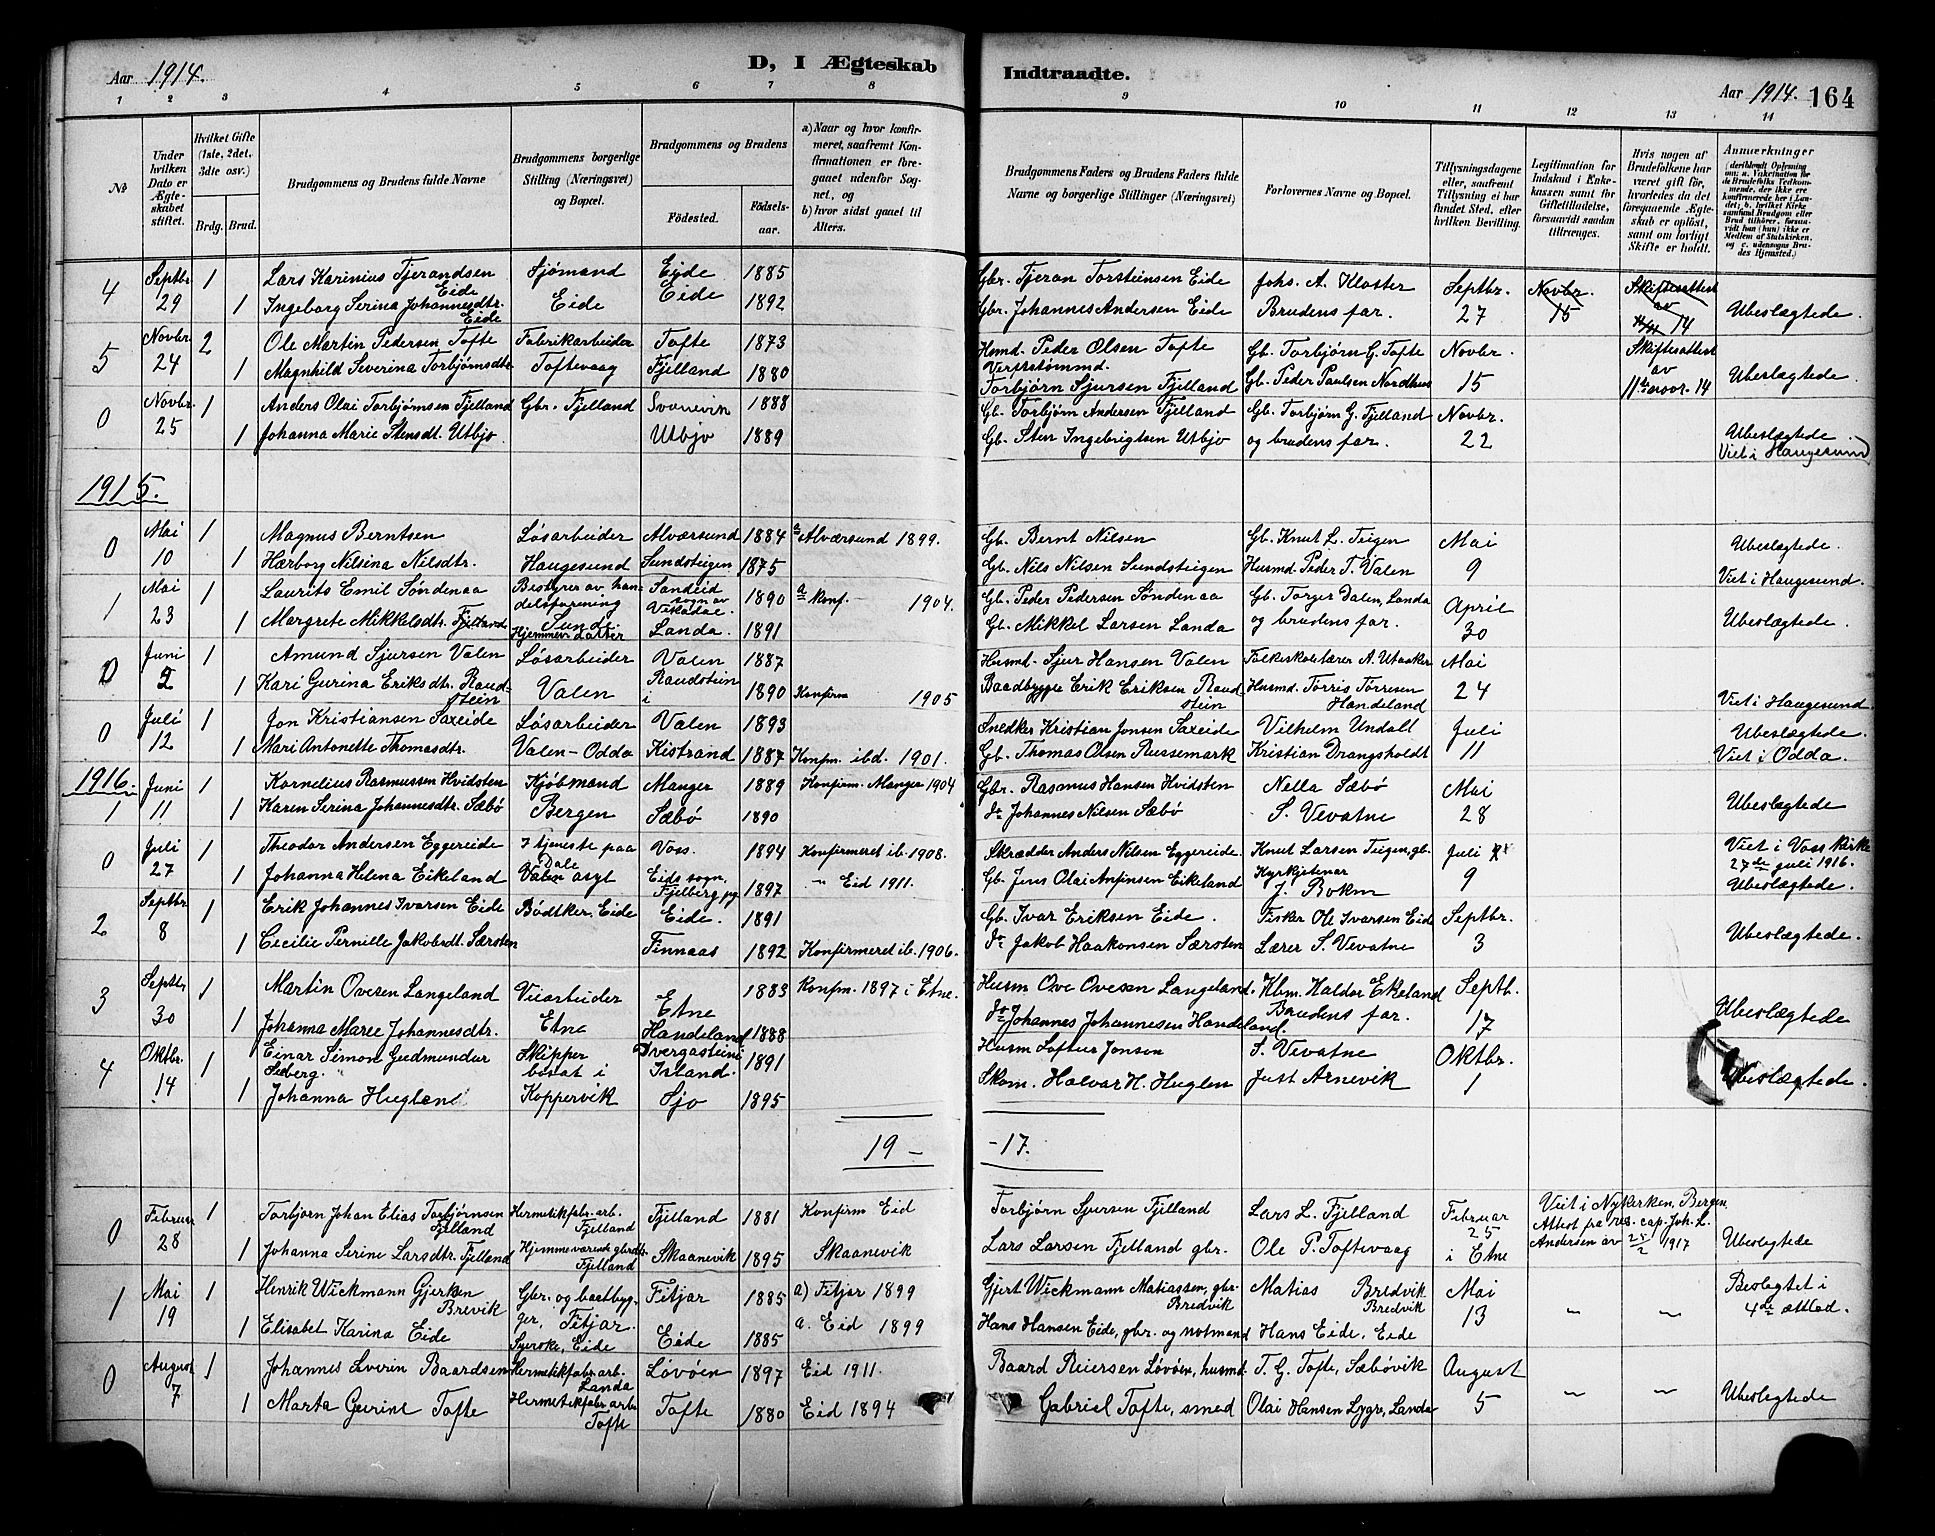 Aar 1914. D, I Ægteskab Indtraadte. Aar 1914. 164
1 2 3 4 5 6 7 8 9 10 11 12 13 14
№ | Under hvilken Dato er Ægteskabet stiftet. | Hvilket Gifte (1ste, 2det, 3dte osv.) Brdg. Brud. | Brudgommens og Brudens fulde Navne | Brudgommens borgerlige Stilling (Næringsvei) og Bopæl. | Brudgommens og Brudens Fødested. Fødselsaar. | a) Naar og hvor konfirmeret, saafremt Konfirmationen er foregaaet udenfor Sognet, og b) hvor sidst gaaet til Alters. | Brudgommens Faders og Brudens Faders fulde Navne og borgerlige Stillinger (Næringsvei) | Forlovernes Navne og Bopæl. | Tillysningsdagene eller, saafremt Tillysning ei har fundet Sted, efter hvilken Bevilling. | Legitimation for Indskud i Enkekassen samt for Giftetilladelse, forsaavidt saadan tiltrænges. | Hvis nogen af Brudefolkene har været gift før, hvorledes da det foregaaende Ægteskab er opløst, samt om lovligt Skifte er holdt. | Anmærkninger
4 Septbr. 29 1 Lars Karinius Tjerandsen Eide Sjømand Eide 1885 Gbr. Tjeran Torsteinsen Eide Johs. A. Kloster Septbr. 27 Novbr. 15 Skifteattest av 11/11 14
1 Ingeborg Serina Johannesdtr. Eide Eide Eide 1892 Gbr. Johannes Andersen Eide Brudens far. Ubeslægtede.
5 Novbr 24 2 Ole Martin Pedersen Tofte Fabrikarbeider Tofte 1873 Husmd. Peder Olsen Tofte Gb. Torbjørn G. Tofte Novbr. 15 Skifteattest av 11te novbr. 14
1 Magnhild Severina Torbjørnsdtr Toftevaag Fjelland 1880 Torbjørn Sjursen Fjelland Gb. Peder Paulsen Nordhus Ubeslægtede.
0 Novbr. 25 1 Anders Olai Torbjørnsen Fjelland Gbr. Fjelland 1888 Gb. Torbjørn Andersen Fjelland Gb. Torbjørn G. Fjelland Novbr. 22
1 Johanna Marie Stensdt. Utbjo. Utbjo 1889 Gb. Sten Ingebrigtsen Utbjo og brudens far. Ubeslægtede. Viet i Haugesund
1915.
0 Mai 10 1 Magnus Berntsen Løsarbeider Alværsund 1884 a Alværsund 1899. Gb. Bernt Nilsen Gb. Knut L. Teigen Mai 9 Ubeslægtede.
1 Hærborg Nilsina Nilsdtr. Haugesund Sundsteigen 1875 Gb. Nils Nilsen Sundsteigen Husmd Peder T. Valen Viet i Haugesund.
1 Mai 23 1 Laurits Emil Søndenaa Bestyrer av handelsforening Sandeid sogn av Vikedal. 1890 a Konf. 1904. Gb. Peder Pedersen Søndenaa Gb. Torger Dalen, Landa April 30
1 Margrete Mikkelsdtr. Sunde Landa. 1891 Gb. Mikkel Larsen Landa og brudens far. Ubeslægtede.
0 Juni 2 1 Amund Sjursen Valen Løsarbeider Valen 1887 Husmd. Sjur Hansen Valen Folkeskolelærer A. Utaaker Mai 24
1 Kari Gurina Eriksdtr. Raudstein Valen Raudstein i 1890 Konfirm 1905 Baadbygger Erik Eriksen Raudstein Husmd. Torris Torresen Handeland Viet i Haugesund
0 Juli 12 1 Jon Kristiansen Saxeide Løsarbeider Valen 1893 Snedker Kristian Jonsen Saxeide Vilhelm Undall Juli 11 Ubeslægtede.
1 Mari Antonette Thomasdtr. Valen-Odda Kistrand 1887 Konfm. ibd. 1901. Gb. Thomas Olsen Russemark Kristian Drangsholdt Viet i Odda.
1916. 1 Juni 11 1 Kornelius Rasmussen Hvidsten Kjøbmand Manger 1889 Konfirm. Manger 1904 Gbr. Rasmus Hansen Hvidsten Nella Sæbø Mai 28
1 Karen Serina Johannesdtr. Sæbø Bergen Sæbø 1890 do Johannes Nilsen Sæbø S. Vevatne Ubeslægtede
0 Juli 27 1 Theodor Andersen Eggereide I tjeneste paa Voss. 1894 Konfirmeret ib. 1908. Skrædder Anders Nilsen Eggereide. Knut Larsen Teigen, gb. Juli 9 Viet i Voss kirke 27de juli 1916.
1 Johanna Helena Eikeland Valen asyl Eids sogn, Fjelberg pg 1897 " Eid 1911. Gb. Jens Olai Anfinsen Eikeland Kyrkjetenar J. Bokm Ubeslægtede.
2 Septbr 8 1 Erik Johannes Ivarsen Eide Bødtker, Eide Eide. 1891 Gb. Ivar Eriksen Eide. Fisker Ole Ivarsen Eide Septbr. 3
1 Cecilie Pernille Jakobsdt. Særsten Finnaas 1892 Konfirmeret ib. 1906. do Jakob Haakonsen Særsten Lærer S. Vevatne Ubeslægtede.
3 Septbr. 30 1 Martin Ovesen Langeland Veiarbeider Etne 1883 Konfm. 1897 i Etne. Husm Ove Ovesen Langeland. Kbm. Haldor Ekeland Septb. 17
1 Johanna Maree Johannesdtr. Etne Handeland 1888 do Johannes Johannesen Handeland. Brudens far. Ubeslægtede
4 Oktbr. 14 1 Einar Simon Gudmundur Seberg. Skipper bosat i Dvergasteini Island. 1891 Husm Loftur Jonsen S. Vevatne Oktbr. 1
1 Johanna Huglen Koppervik Sjo 1895 Skom. Halvar H. Huglen Just Arnevik Ubeslægtede.
19 - - 17.
0 Februar 28 1 Torbjørn Johan Elias Torbjørnsen Fjelland Hermetikfabr. arb. Fjelland Fjelland 1881 Konfirm Eid Torbjørn Sjursen Fjelland Lars L. Fjelland Februar 25 i Etne Viet i Nykirken, Bergen, Attest fra res. cap. Joh. L. Andersen av 28/2 1917
1 Johanna Serine Larsdtr. Fjelland Hjemmeværende gbrdtr. Fjelland Skaanevik 1895 Skaanevik Lars Larsen Fjelland gbr. Ole P. Toftevaag Ubeslegtede
1 Mai 19 1 Henrik Wickmann Gjerken Brevik Gbr. og baatbygger, Fitjar. Fitjar 1885 a) Fitjar 1899 Gjert Wickmann Matiassen, gbr. Bredvik Matias Bredvik Bredvik Mai 13 " " Beslegtet i 4de ætled.
1 Elisabet Karina Eide Syerske, Eide Eide 1885 a. Eid 1899 Hans Hansen Eide, gbr. og notmand Hans Eide, Eide
0 August 7 1 Johannes Severin Baardsen Hermetikfabr. arb. Landa Løvøen 1897 Eid 1911. Baard Reiersen Løvøen, husmd. T. G. Tofte, Sæbøvik August 5 " "
1 Marta Gurine Tofte Hermetikfabr. arb. Tofte Tofte 1880 Eid 1894 Gabriel Tofte, smed Olai Hansen Lygre, Landa Ubeslegtede